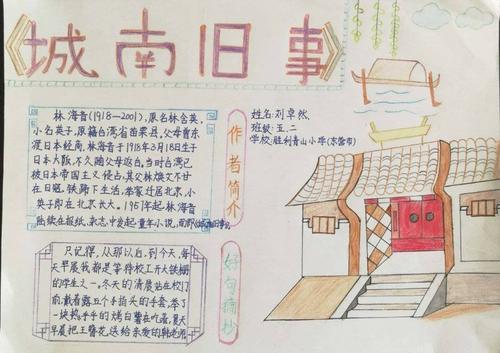 《城南旧事》
姓名:刘卓然
班级:五、二
学校:胜利青山小学(东营市)
作者简介
林海音(1918-2001),原名林含英,
小名英子,原籍台湾省苗栗县,父母曾东
渡日本经商,林海音于1918年3月18日生于
日本大阪,不久随父母返台,当时台湾已
被日本帝国主义侵占,其父林焕文不甘
在日寇铁蹄下生活,举家迁居北京,小
英子即在北京长大。1951年起,林海音
陆续在报纸、杂志中发起童年小说,
好句摘抄
只记得,从那以后,到今天,每
天早晨我都是等待校工开大铁栅
的学生之一,冬天的清晨站在校门
前,戴着露五个手指头的手套,举了
一块热手的烤白薯在吃着,夏天
早晨把玉簪花送给亲爱的韩老师